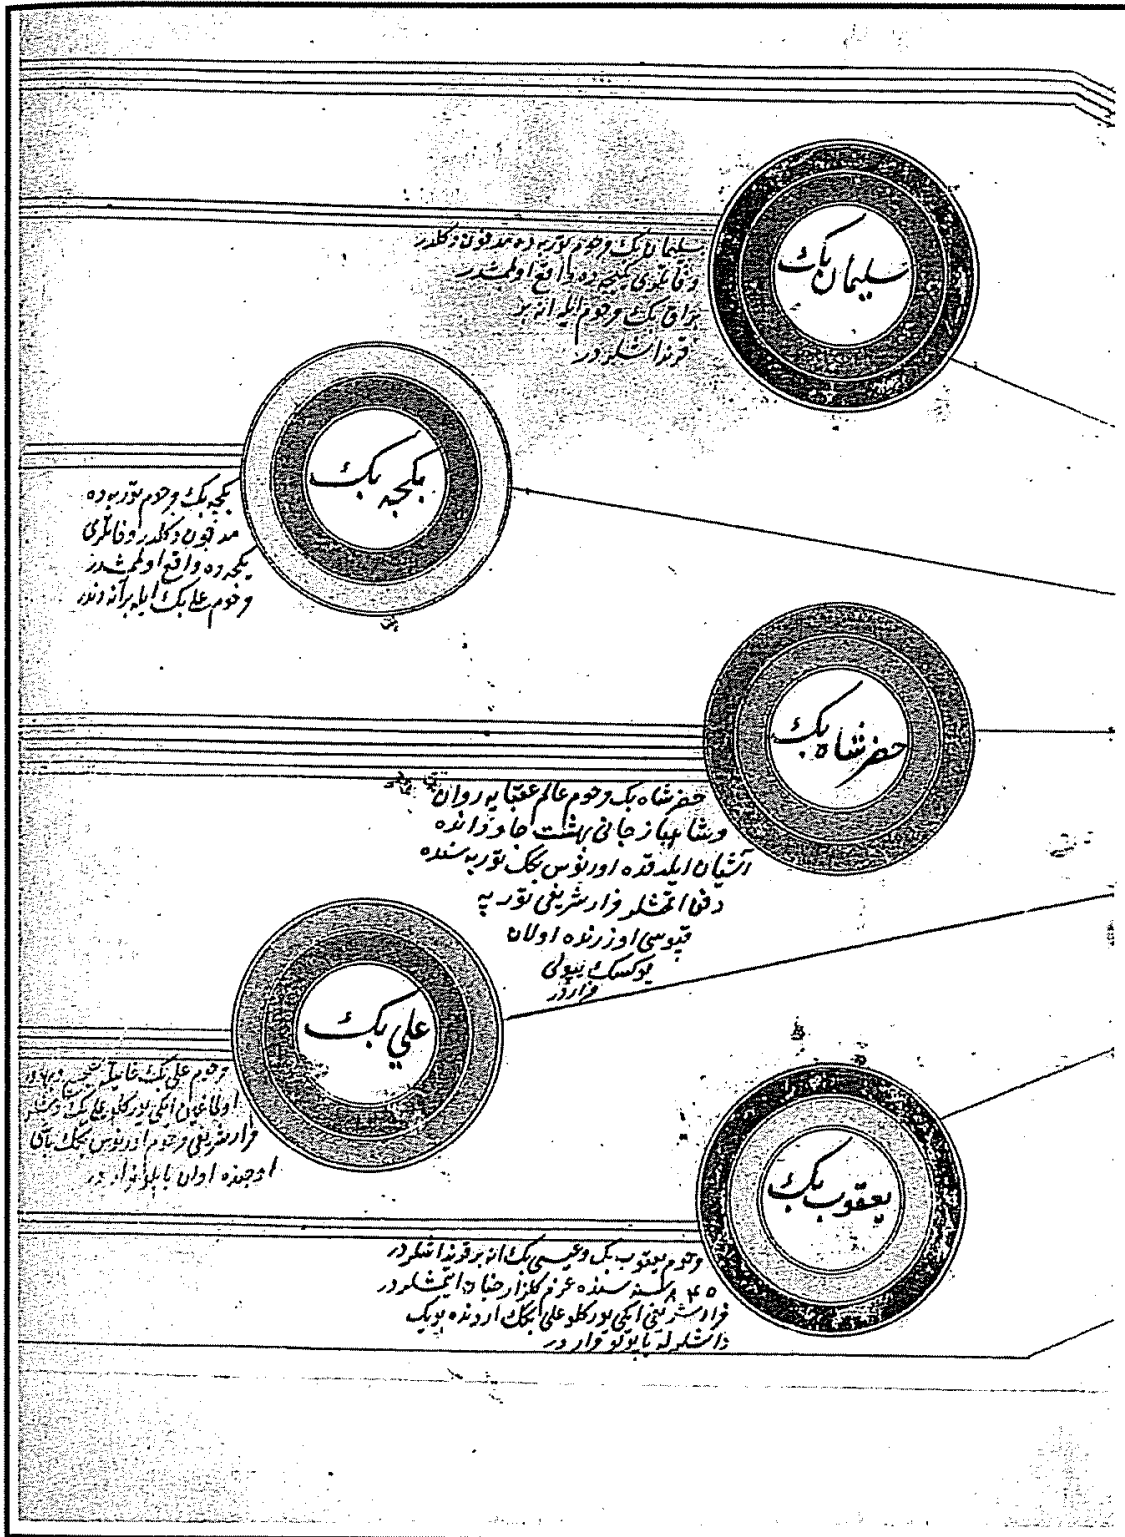 سليمان بك
سليمان بك مرحوم تربه ده مدفون دكلدر
وفاتلرى يكيجه ده واقع اولمشدر
براق بك مرحوم ايله انه بر
قرنداشلردر
بكجه بك
بكجه بك مرحوم تربه ده
مدفون دكلدر وفاتلرى
يكيجه ده واقع اولمشدر
مرحوم على بك ايله بر انه دندر
حضرشاه بك
حضرشاه بك مرحوم عالم عقبايه روان
وشاهباز جانى بهشت جاودانده
آشيان ايلدكده اورنوس بكك تربه سنده
دفن اتمشلر مزار شريفى تربه
قپوسى اوزرنده اولان
يوكسك
مزاردر
علي بك
مرحوم على بك غايتله
اولماغين ايكى يوركلو على بك ديمشلر
مزار شريفى مرحوم اورنوس بكك باش
اوجنده اولان ياپلو مزاردر
يعقوب بك
مرحوم يعقوب بك وعيسى بك انه بر قرنداشلردر
٨٤٥ سنه سنده عزم كلزار جنان اتمشلردر
مزار شريفى ايكى يوركلو على بكك اردنده بيوك
داشلرله ياپولو مزاردر